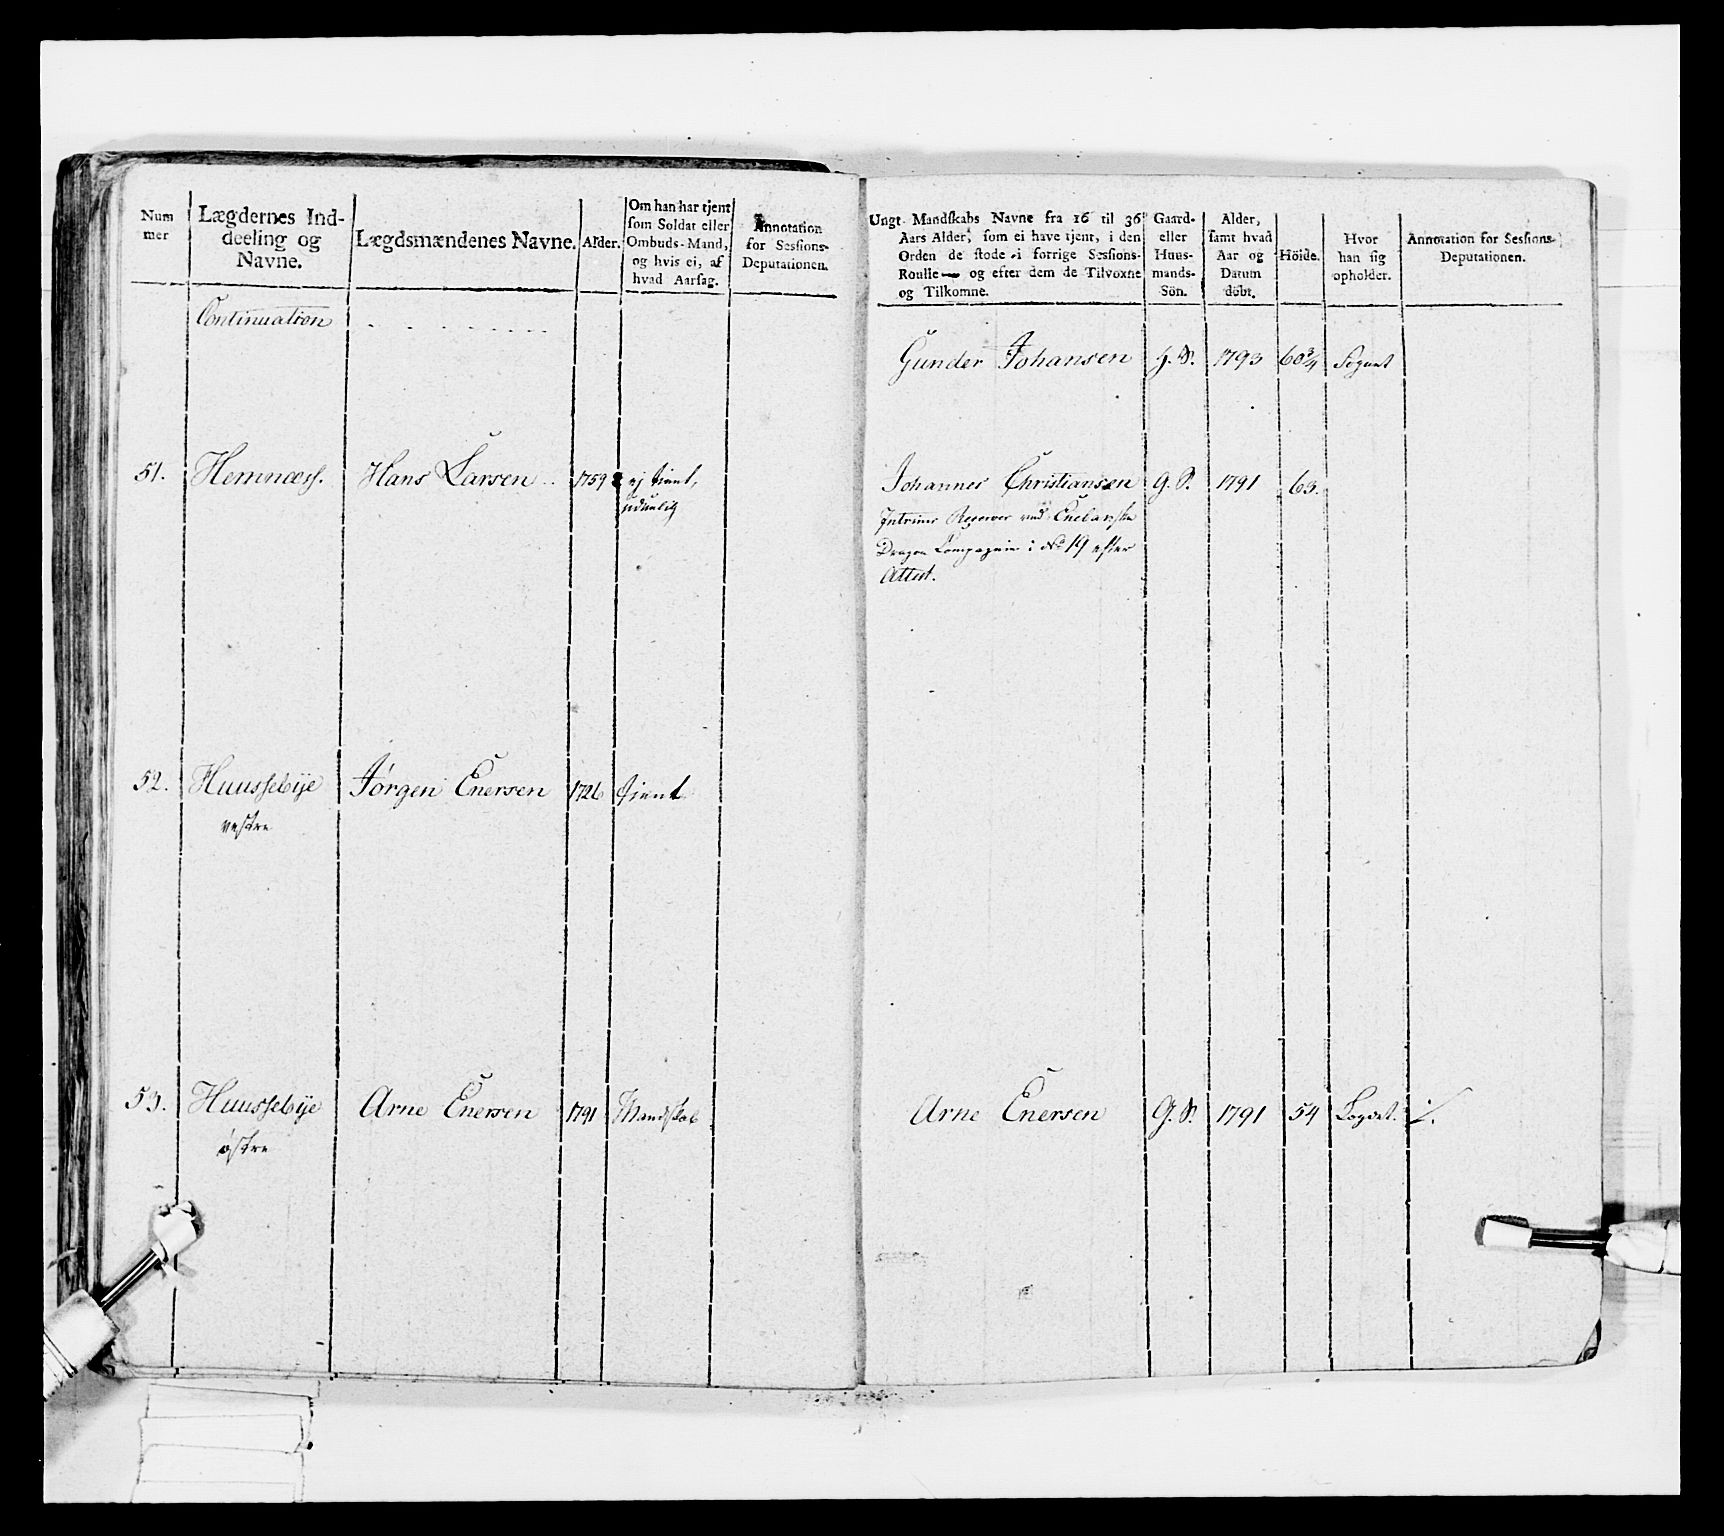 Num
mer
Lægdernes Ind-
deeling og
Navne.
Lægdsmændenes Navne.
Alder.
Om han har tjent
som Soldat eller
Ombuds-Mand,
og hvis ei, af
hvad Aarsag.
Annotation
for Sessions-
Deputationen.
Continuation
51. Hemnæss. Hans Larsen 1759 ej tient,
uduelig
52. Huussebije Jørgen Enersen 1726 tient
vestre
53. Huussebije Arne Enersen 1791 Mandskab
østre
Ungt Mandskabs Navne fra 16 til 36
Aars Alder, som ei have tjent, i den
Orden de stode i forrige Sessions-
Roulle — og efter dem de Tilvoxne
og Tilkomne.
Gaard-
eller
Huus-
mands-
Sön.
Alder,
samt hvad
Aar og
Datum
döbt.
Höide.
Hvor
han sig
opholder.
Annotation for Sessions-
Deputationen.
Gunder Johansen G. S. 1793 60 3/4 Sognet
Johannes Christiansen G. S. 1791 63.
Interims Reserver ved Enebakske
Dragon Compagnie i No 19 efter
Attest.
Arne Enersen G. S. 1791 54 ./.